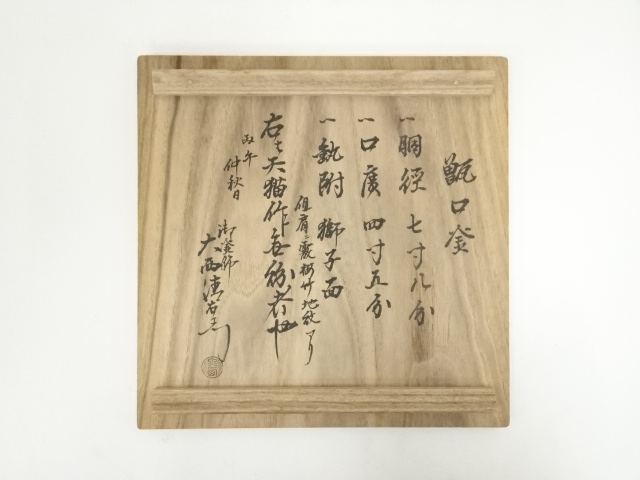 甑口釜
一胴径 七寸八分
一口廣 四寸五分
一執附 獅子面
但肩ニ霰 竹地紋アリ
右ハ天猫作無紛者也
丙午 仲秋日
御釜師
大西清右衛門